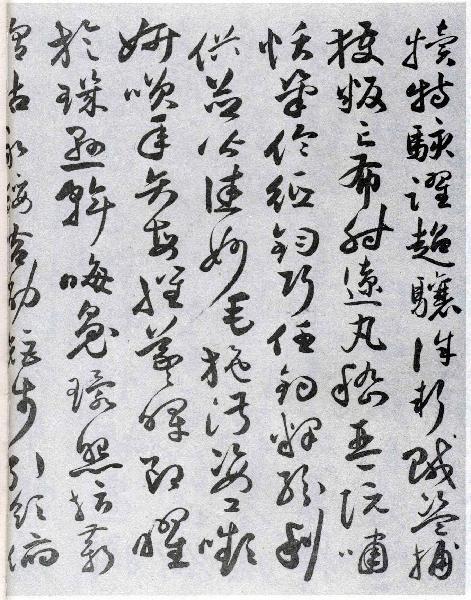 犢特駭躍超驤誅斬賊盜捕
獲叛亡布射遼丸嵇琴阮嘯
恬筆倫紙鈞巧任釣釋紛利
俗並皆佳妙毛施淑姿工嚬
妍咲年矢每催羲暉朗曜
旋璣懸斡晦魄環照指薪
修祜永綏吉劭矩步引領俯